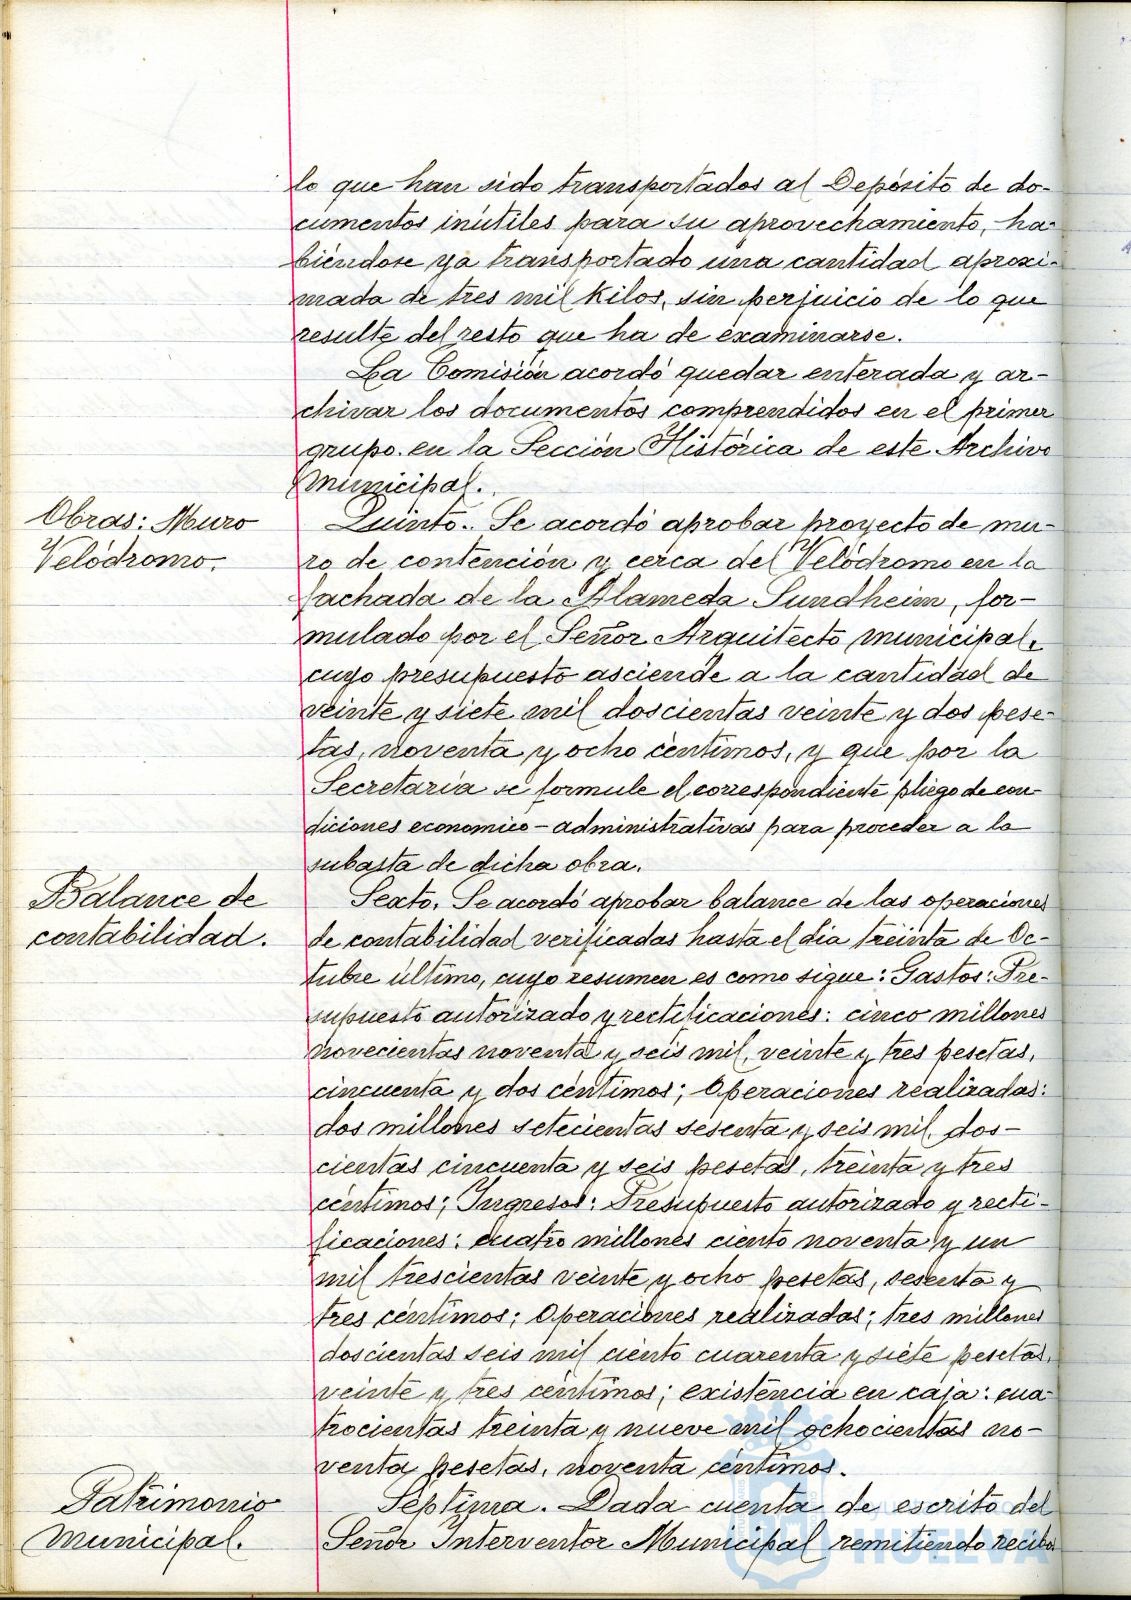 lo que han sido transportados al Depósito de do-
cumentos inútiles para su aprovechamiento, ha-
biéndose ya transportado una cantidad aproxi-
mada de tres mil kilos, sin perjuicio de lo que
resulte del resto que ha de examinarse.
La Comisión acordó quedar enterada y ar-
chivar los documentos comprendidos en el primer
grupo en la Sección Histórica de este Archivo
Municipal.
Obras: Muro
Velódromo.
Quinto. Se acordó aprobar proyecto de mu-
ro de contención y cerca del Velódromo en la
fachada de la Alameda Sundheim, for-
mulado por el Señor Arquitecto municipal,
cuyo presupuesto asciende a la cantidad de
veinte y siete mil doscientas veinte y dos pese-
tas, noventa y ocho céntimos, y que por la
Secretaría se formule el correspondiente pliego de con-
diciones economico-administrativas para proceder a la
subasta de dicha obra.
Balance de
contabilidad.
Sexto. Se acordó aprobar balance de las operaciones
de contabilidad verificadas hasta el dia treinta de Oc-
tubre último, cuyo resumen es como sigue: Gastos: Pre-
supuesto autorizado y rectificaciones: cinco millones
novecientas noventa y seis mil, veinte y tres pesetas,
cincuenta y dos céntimos; Operaciones realizadas:
dos millones setecientas sesenta y seis mil, dos-
cientas cincuenta y seis pesetas, treinta y tres
céntimos; Ingresos: Presupuesto autorizado y recti-
ficaciones: cuatro millones ciento noventa y un
mil trescientas veinte y ocho pesetas, sesenta y
tres céntimos; Operaciones realizadas; tres millones
doscientas seis mil ciento cuarenta y siete pesetas,
veinte y tres céntimos; existencia en caja: cua-
trocientas treinta y nueve mil ochocientas no-
venta pesetas, noventa céntimos.
Patrimonio
Municipal.
Séptima. Dada cuenta de escrito del
Señor Interventor Municipal remitiendo recibos
HUELVA